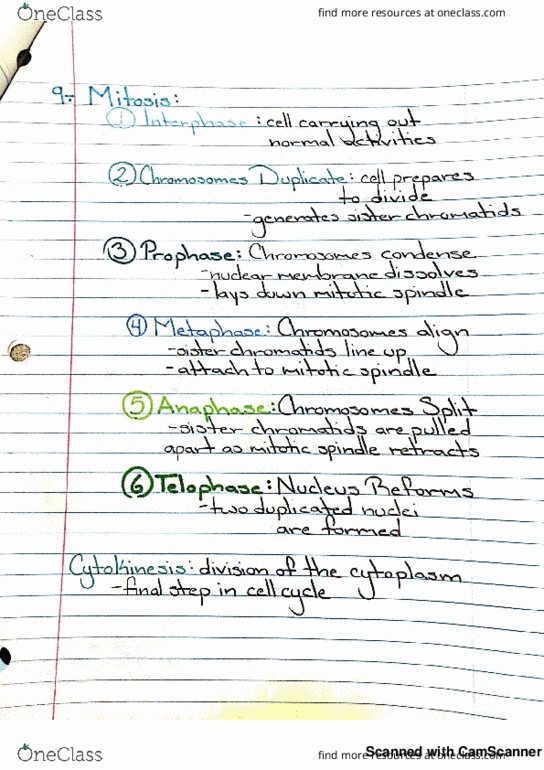 OneClass
find more resources at oneclass.com
9- Mitosis:
① Interphase: cell carrying out
normal activities
② Chromosomes Duplicate: cell prepares
to divide
-generates sister chromatids
③ Prophase: Chromosomes condense
-nuclear membrane dissolves
-lays down mitotic spindle
④ Metaphase: Chromosomes align
-sister chromatids line up
-attach to mitotic spindle
⑤ Anaphase: Chromosomes Split
-sister chromatids are pulled
apart as mitotic spindle retracts
⑥ Telophase: Nucleus Reforms
-two duplicated nuclei
are formed
Cytokinesis: division of the cytoplasm
-final step in cell cycle
OneClass
find more resources at oneclass.com
Scanned with CamScanner